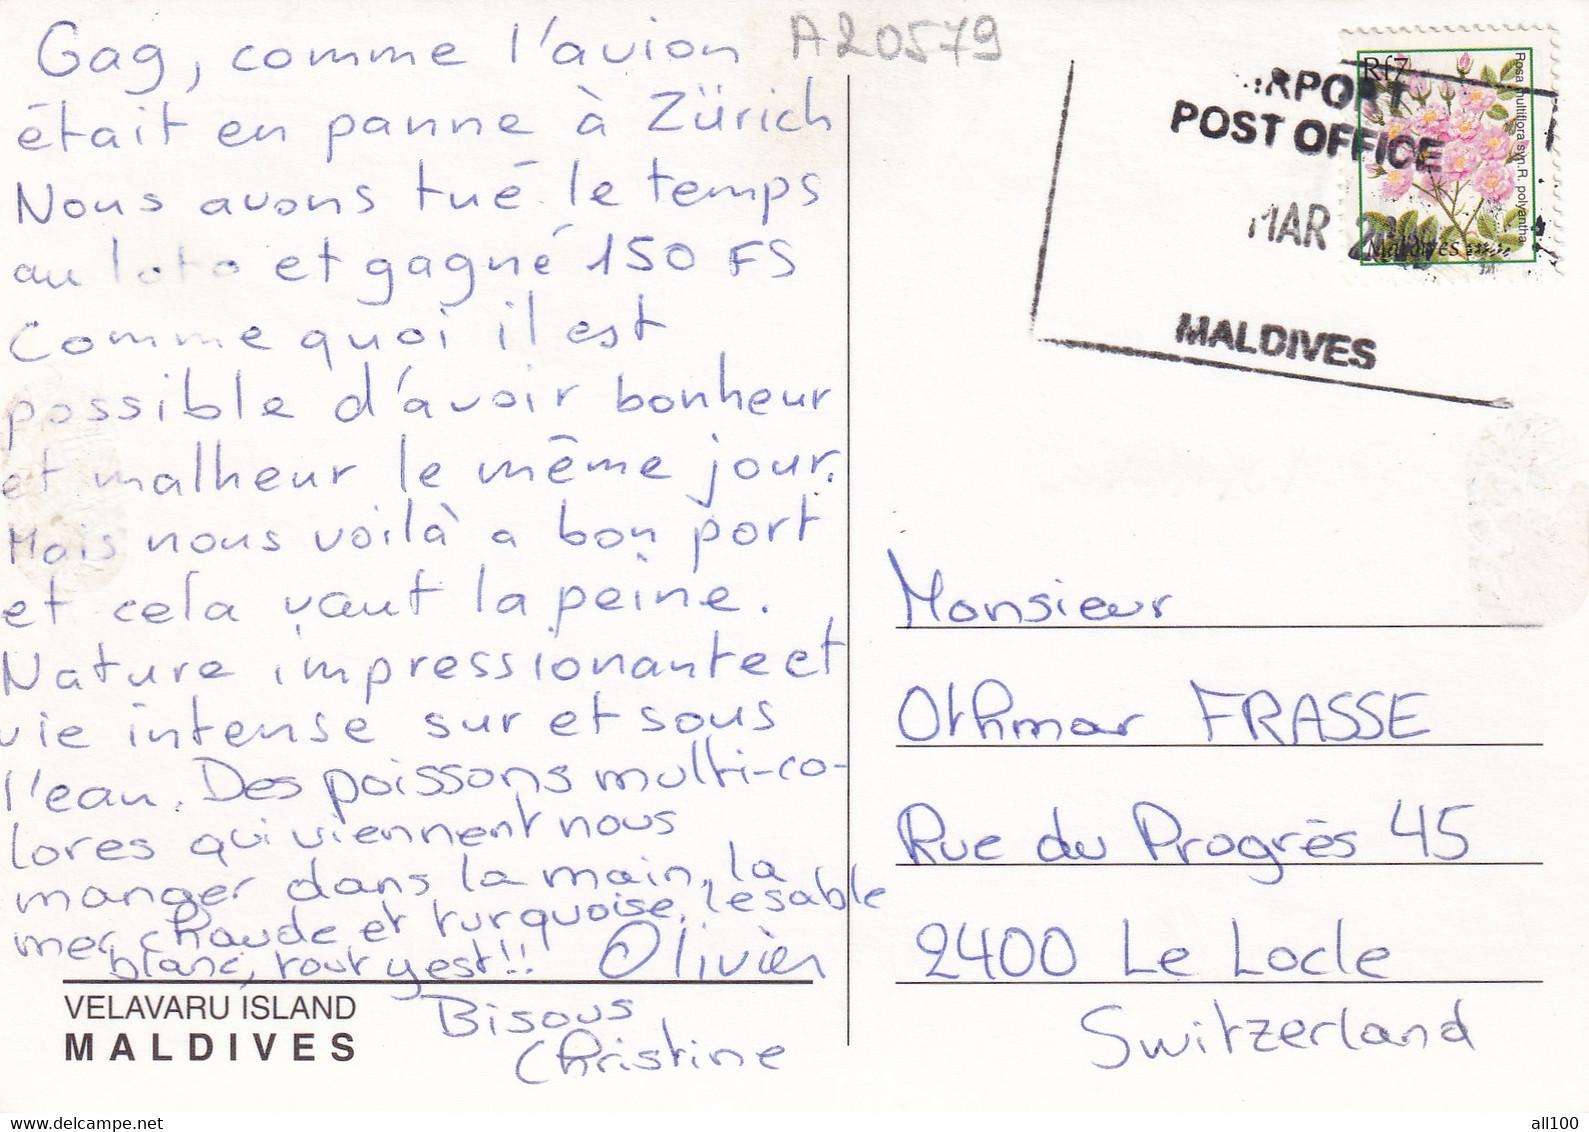 Gag, comme l'avion
était en panne à Zürich
Nous avons tué le temps
au loto et gagné 150 FS
Comme quoi il est
possible d'avoir bonheur
et malheur le même jour.
Mais nous voilà a bon port
et cela vaut la peine.
Nature impressionante et
vie intense sur et sous
l'eau. Des poissons multi-co-
lores qui viennent nous
manger dans la main, la
mer chaude et turquoise, le sable
blanc, tout y est!! Olivier
Bisous
Christine
VELAVARU ISLAND
MALDIVES
A20579
POST OFFICE
MAR
MALDIVES
Rf7
Rosa multiflora syn. R. polyantha
Maldives
Monsieur
Othmar FRASSE
Rue du Progrès 45
2400 Le Locle
Switzerland
all100